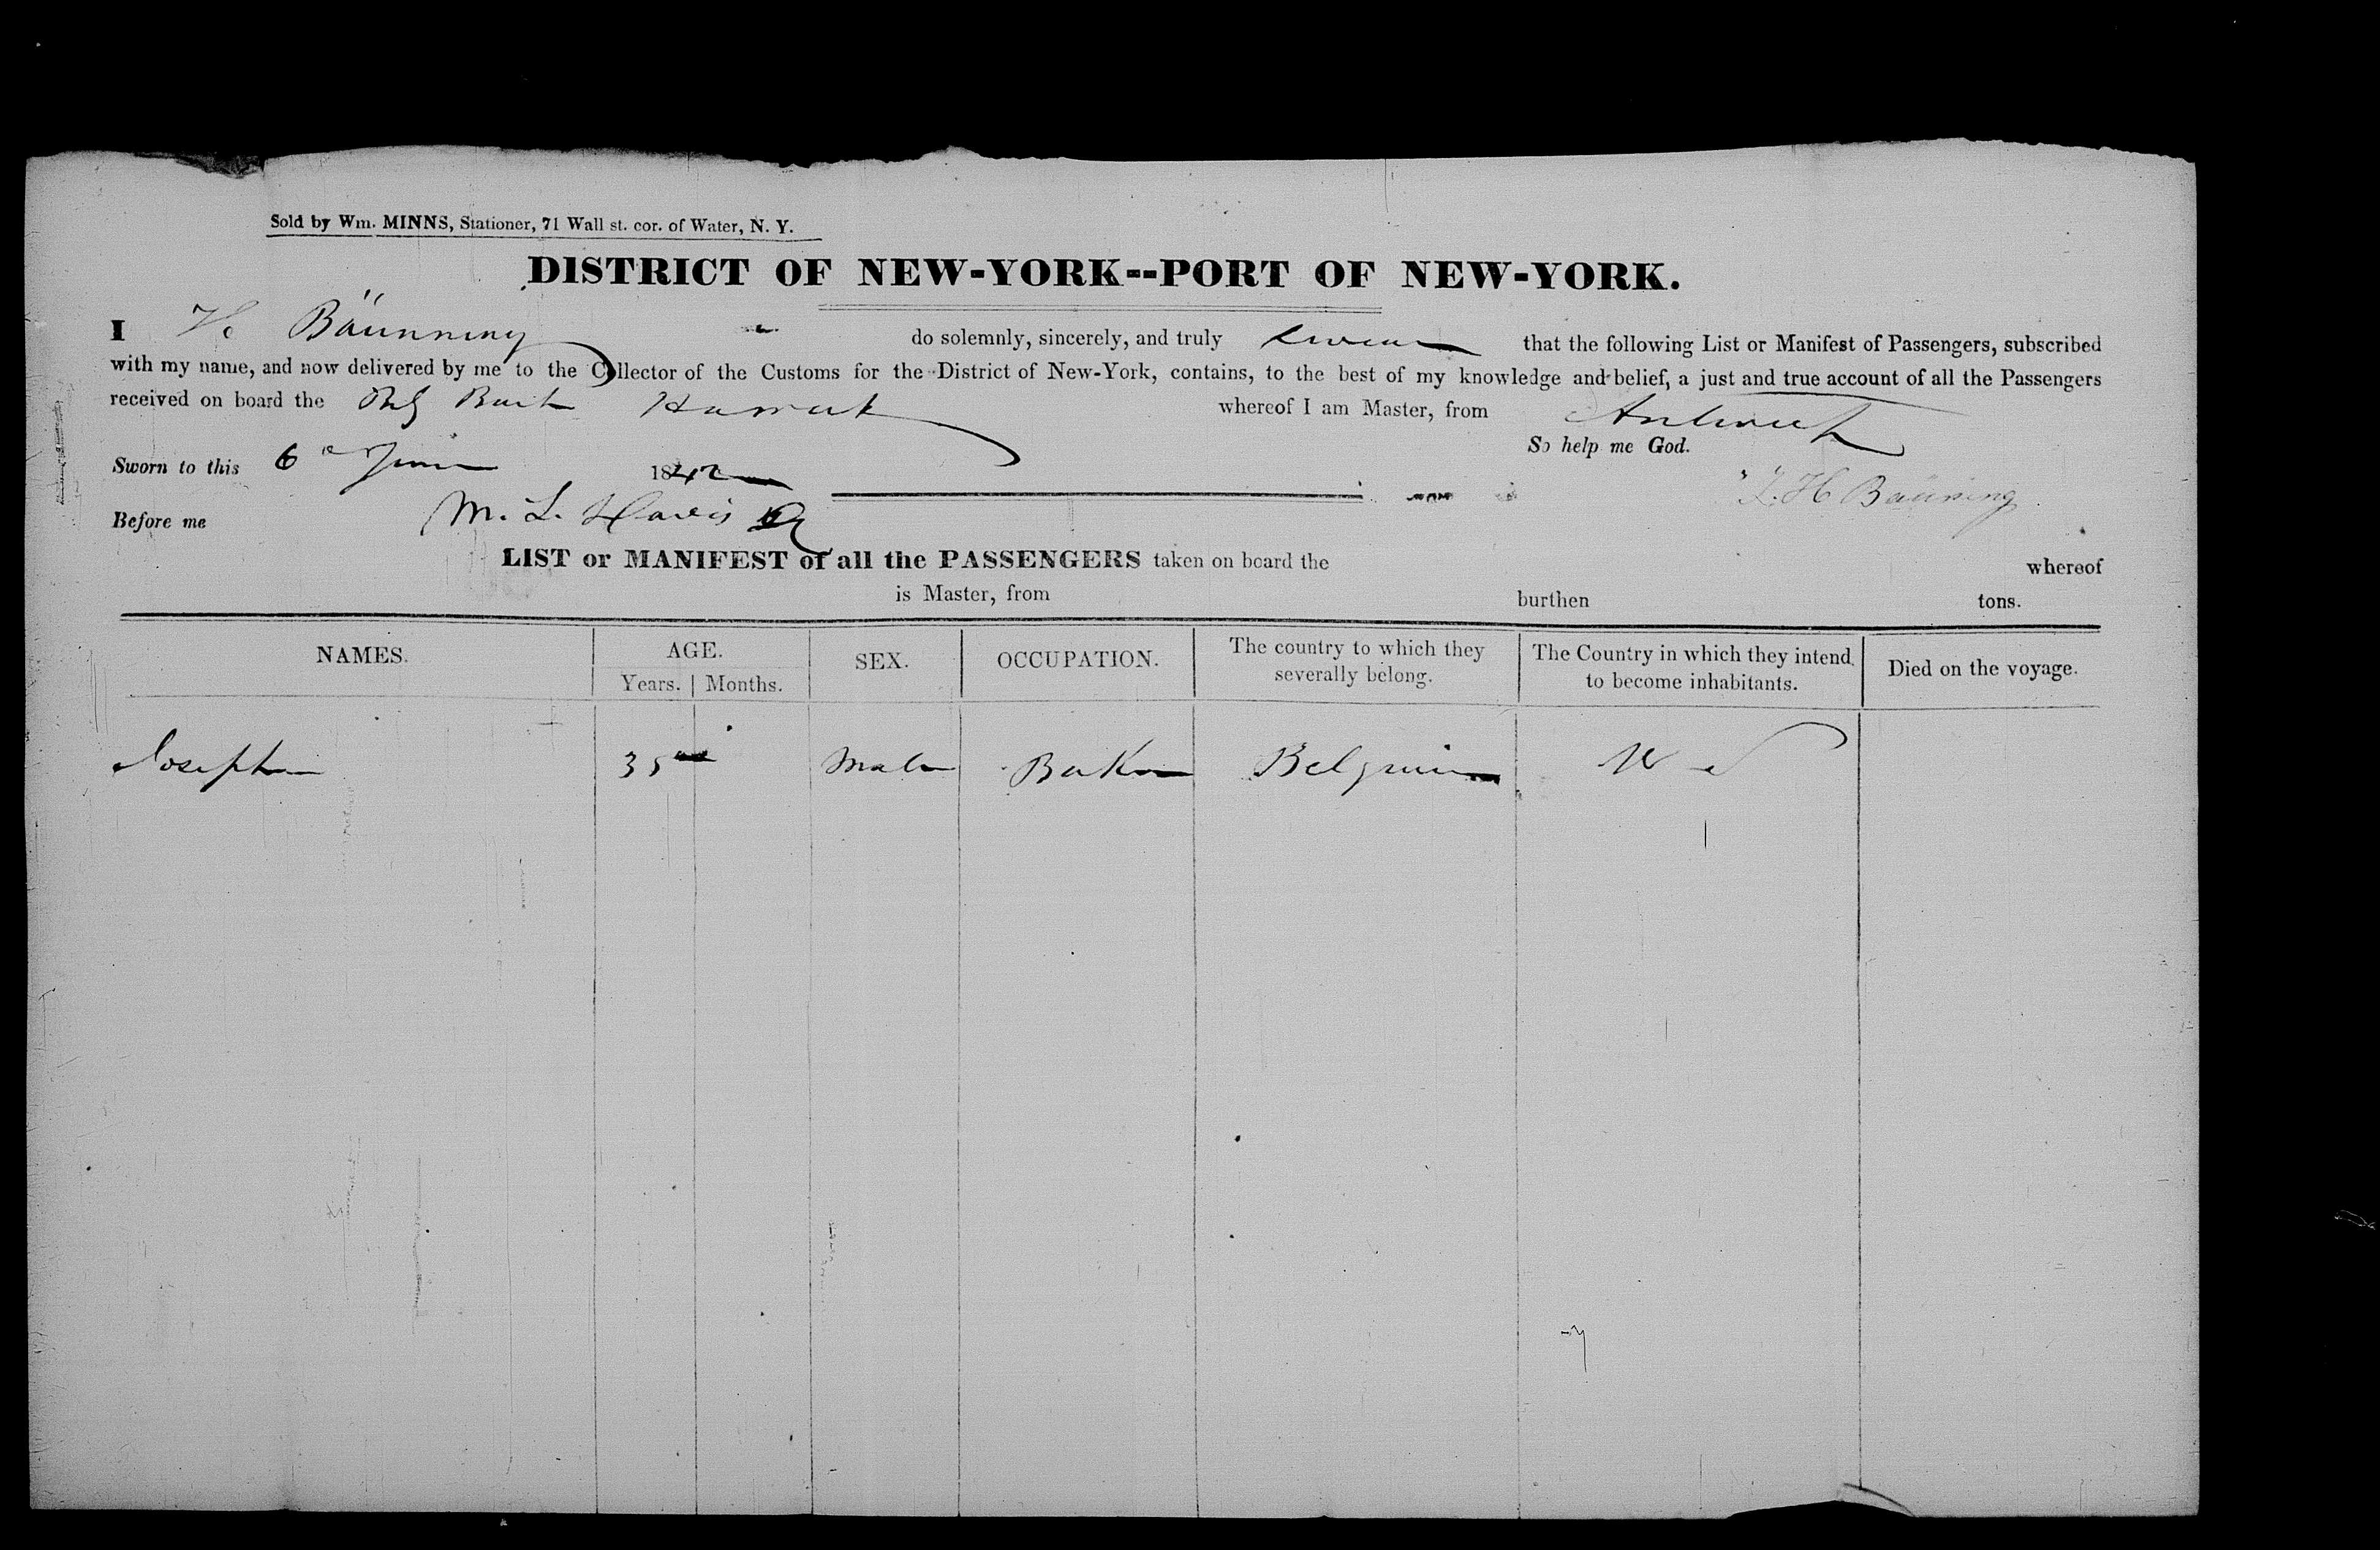 Sold by Wm. MINNS, Stationer, 71 Wall st. cor. of Water, N. Y.
DISTRICT OF NEW-YORK--PORT OF NEW-YORK.
I H Bäunning do solemnly, sincerely, and truly swear that the following List or Manifest of Passengers, subscribed
with my name, and now delivered by me to the Collector of the Customs for the District of New-York, contains, to the best of my knowledge and belief, a just and true account of all the Passengers
received on board the Bark whereof I am Master, from Antwerp
So help me God.
Sworn to this 6 June 1842
J. H Bäuning
Before me M. L. Davis
LIST or MANIFEST of all the PASSENGERS taken on board the whereof
is Master, from burthen tons.
NAMES. AGE. SEX. OCCUPATION. The country to which they severally belong. The Country in which they intend to become inhabitants. Died on the voyage.
Years. Months.
Joseph 35 Male Baker Belgium U S